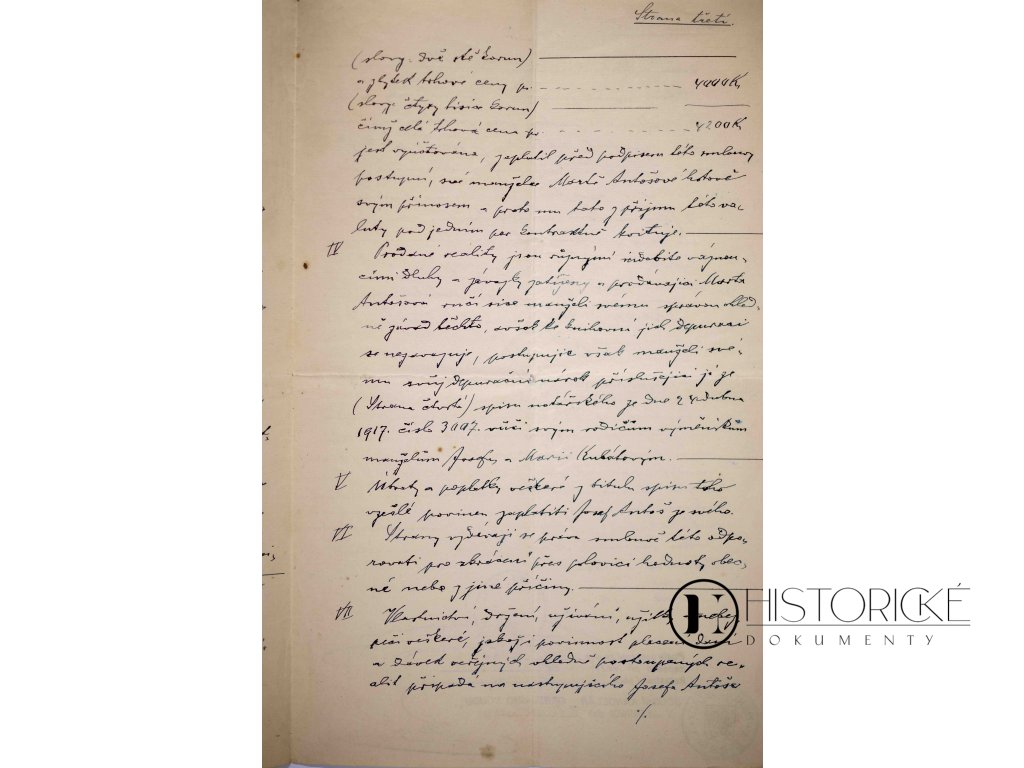 Strana třetí.
(slovy: dvě stě korun)
a zbytek trhové ceny per 4000K
(slovy: čtyry tisíce korun)
čímž celá trhová cena per 4200K
jest vyúčtována, zaplatil před podpisem této smlouvy
postupní, své manželce Martě Antošové hotově
svým přínosem a proto mu tato z příjmu této va-
luty pod jedním per kontraktně kvituje.
IV Prodané reality jsou různými váznou-
cími dluhy a závazky zatíženy a prodávající Marta
Antošová ručí sice manželu svému správou ohled-
ně závad těchto, avšak ke knihovní jich depuraci
se nezavazuje, postupujíc však manželi své-
mu svůj depurační nárok příslušející jí ze
(Strana čtvrtá) spisu notářského ze dne dubna
1917. číslo 3007. vůči svým rodičům výměnkářům
manželům Josefu a Marii Kubátovým.
V Útraty a poplatky veškeré z titulu spisu toho
vzešlé povinen zaplatiti Josef Antoš ze svého.
VI Strany vzdávají se práva smlouvě této odpo-
rovati pro zkrácení přes polovici hodnoty obec-
né nebo z jiné příčiny.
VII Vlastnictví, držení, užívání, užitky nebez-
pečí veškeré, jakož i povinnost placení daní
a dávek veřejných ohledně postoupených re-
alit připadá na nastupujícího Josefa Antoše
./.
HISTORICKÉ
DOKUMENTY